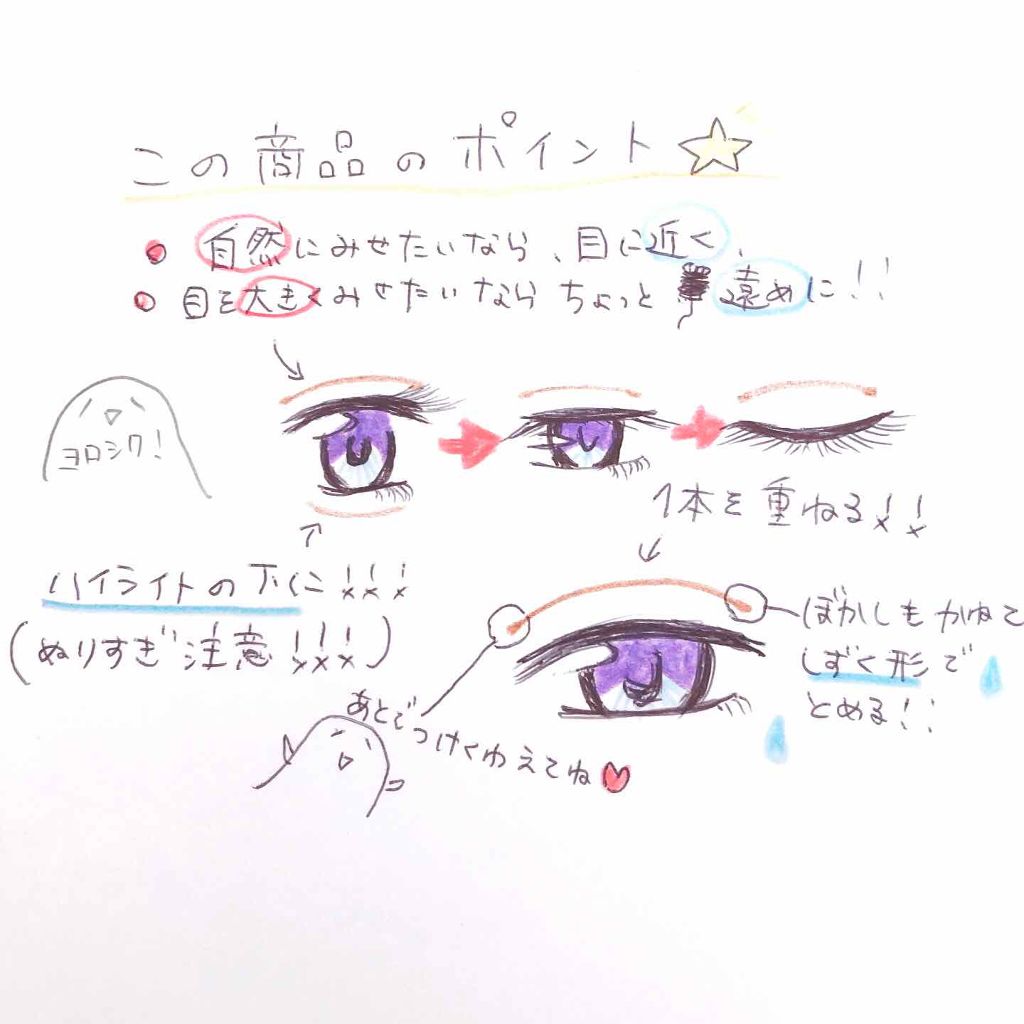 この商品のポイント☆
● 自然にみせたいなら、目に近く、
● 目を大きくみせたいなら ちょっと 遠めに!!
ヨロシク!
1本を重ねる!!
ハイライトの下に!!!
(ぬりすぎ注意!!!)
ぼかしもかねて
しずく形で
とめる!!
あとでつけくわえてね♥